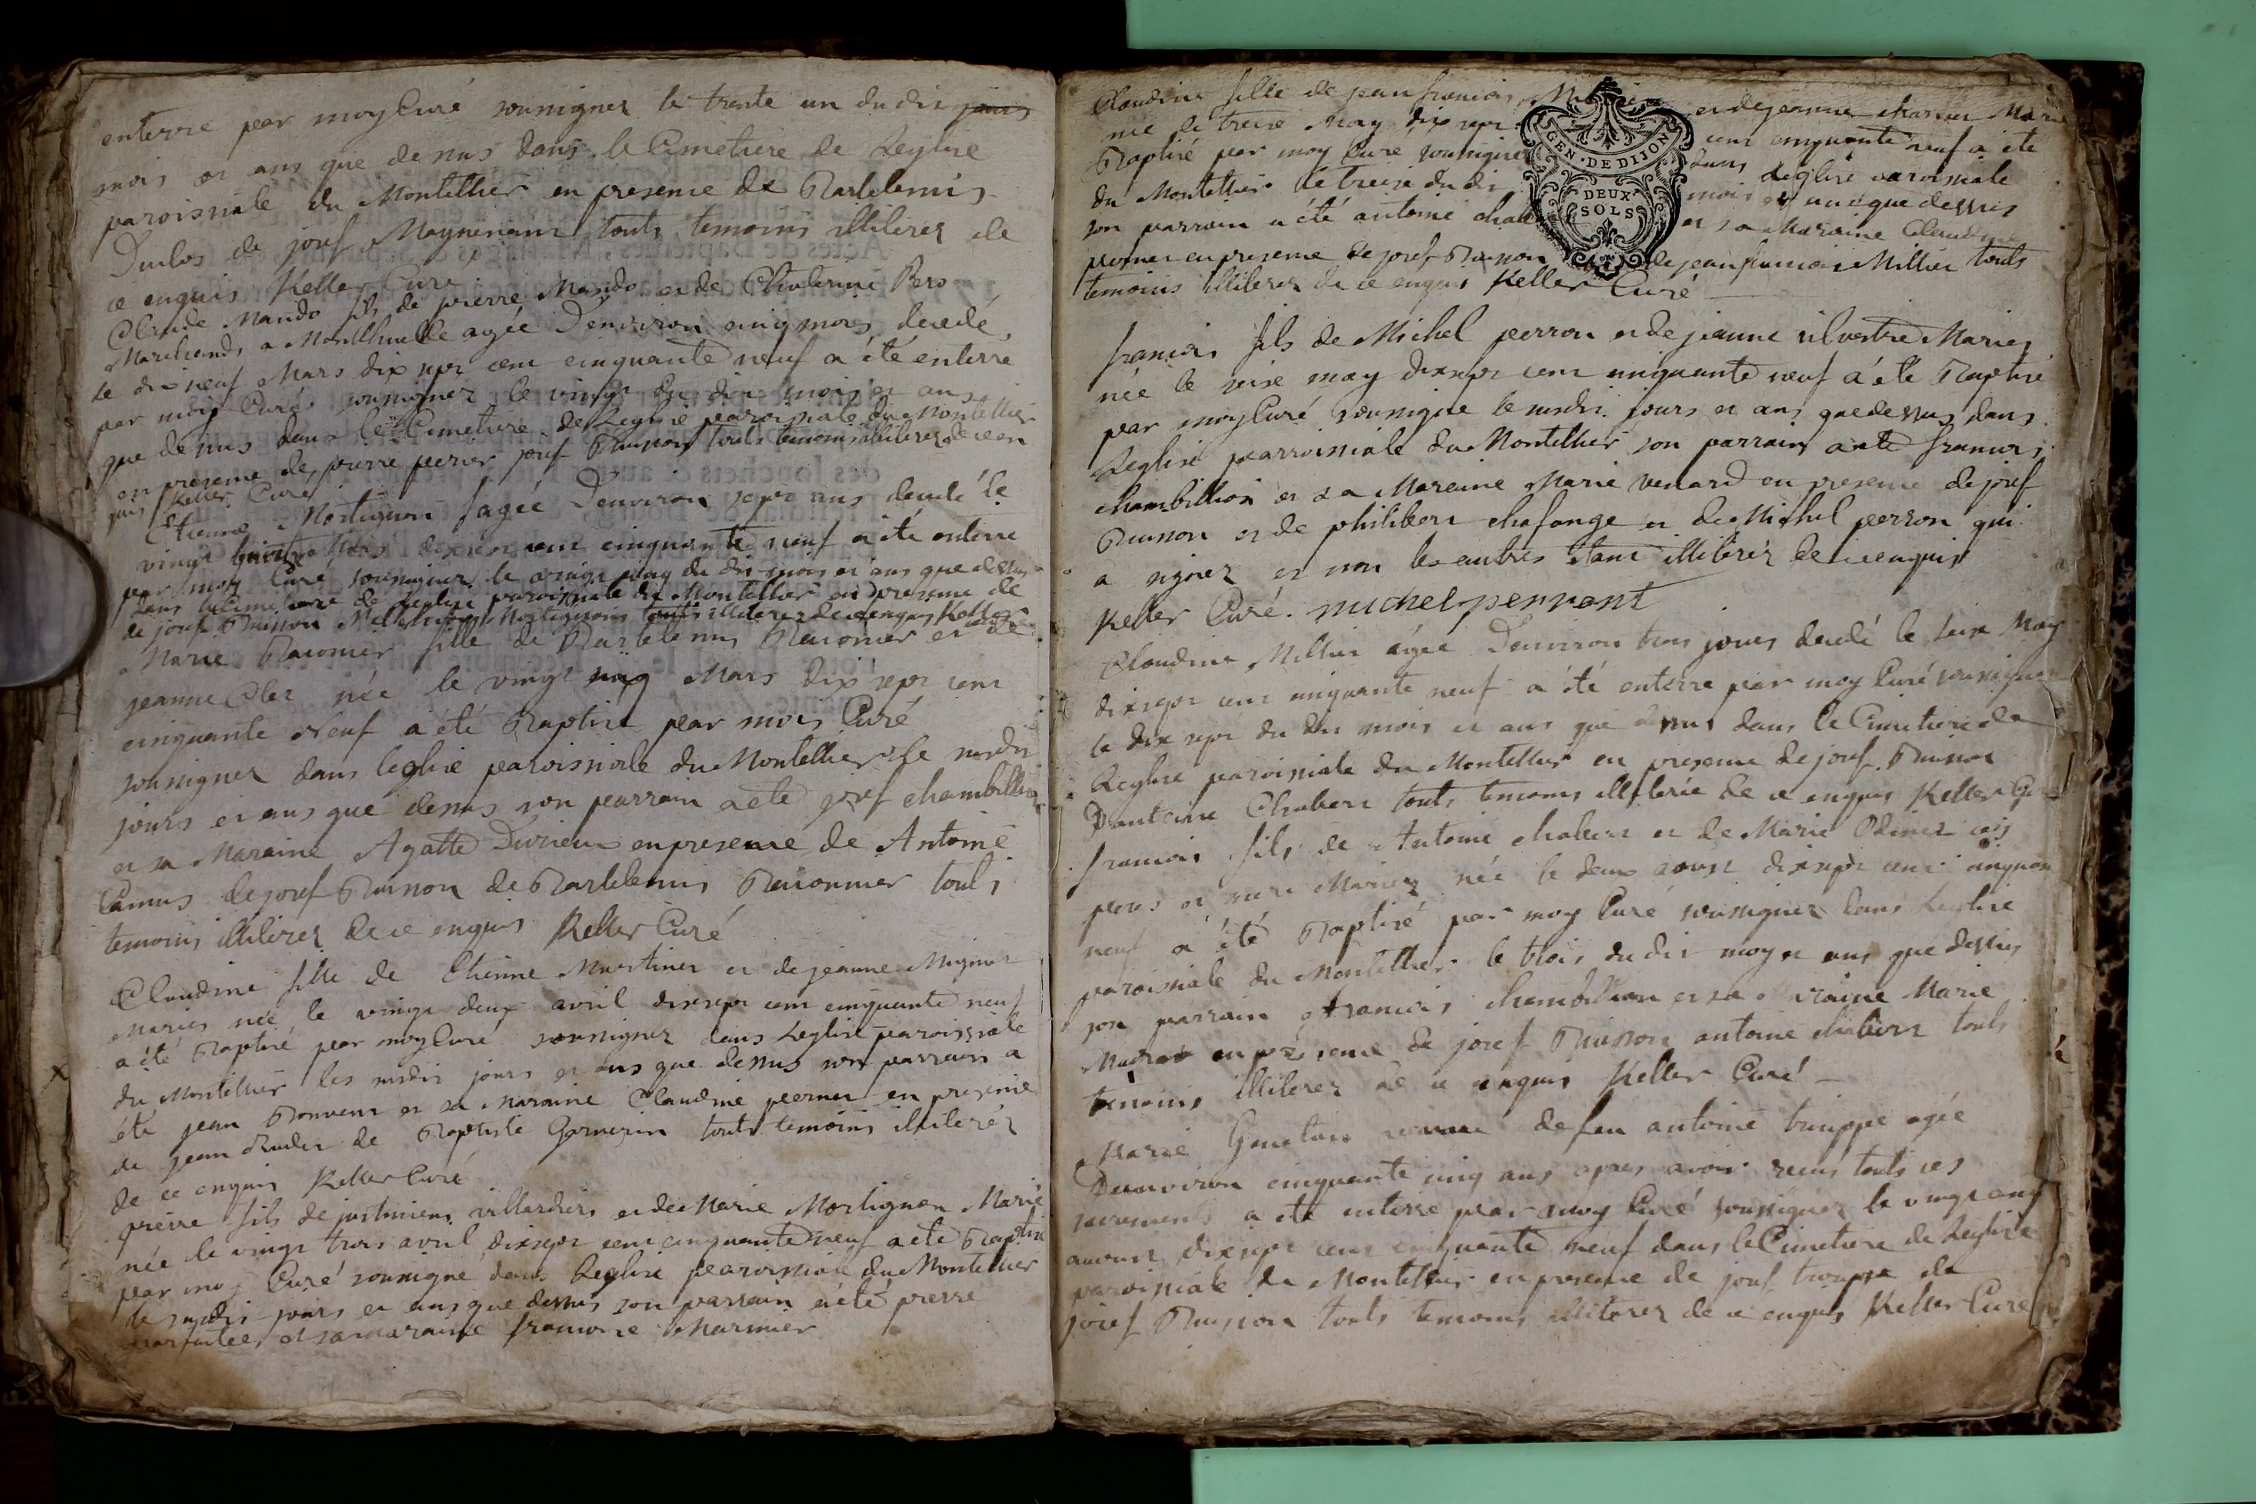 enterré par moy Curé sousignez le trante un dudis jours
mois et ans que desus dans le Cimetiere de Leglise
paroissiale du Montellier en presence de Bartelemis
Duclos de josef touts temoins illiterez de
ce enquis Keller Curé
Claude Mando fils de pierre Mando et de Chaterine Pers
Marchands a Montlhuelle agée Denviron cinq mois decedé
le dix neuf Mars dix sept cent cinquante neuf a été enterré
par moy Curé sousignez le vingt du dis mois et ans
que desus dans le Cimetiere de Leglise paroissiale du Montellier
en presence de pierre perrier josef Buisson touts temoins illiterez de ce en
quis Keller Curé
Etienne Mortignon agée Denviron sept ans decedé le
vingt Mars dixsept cent cinquante neuf a été enterré
par moy Curé sousignez le vingt cinq du dis mois et ans que desus
dans le Cimetiere de Leglise paroissiale du Montellier en presence de
de josef Buisson Mortignons touts illiterez de ce enquis Keller Curé
Marie Raconier fille de Bartelemis Raconier et de
jeanne Cler née le vingt cinq Mars dix sept cent
cinquante Neuf a été Baptisé par mois Curé
sousignez dans leglise paroissiale du Montellier le susdis
jours et ans que desus son parrain a eté josef chambillion
et sa Maraine Agatte Durieux en presence de Antoine
Camus de josef Buison de Bartelemis Raconnier touts
temoins illiterez de ce enquis Keller Curé
Claudine fille de Etienne Martinez et de jeanne Mignot
Mariez née le vingt deux avril dixsept cent cinquante neuf
a été Baptisé par moy Curé sousignez dans Leglise paroissiale
du Montellier les susdis jours et ans que desus son parrain a
été jean Bonvent et sa Maraine Claudine perner en presence
de jean de Baptiste Garnerin touts temoins illiterez
de ce enquis Keller Curé
pierre fils de justinien villardier et de Marie Mortignon Marié
née le vingt trois avril dixsept cent cinquante neuf a été Baptisé
par moy Curé sousigné dans Leglise paroissiale du Montellier
le susdis jours et ans que desus son parrain a été pierre
et sa maraine francoise
Claudine fille de jean francois et de jeanne Marie
née le treize May dix sept cent cinquante neuf a été
Baptisé par moy Curé sousignez dans Leglise paroissiale
du Montellier le treize du dis mois et ans que dessus
son parrain a été antoine et sa Maraine Claudine
perner en presence de josef Buisson de jean francois Millier touts
temoins illiterez de ce enquis Keller Curé
GEN. DE DIJON
DEUX
SOLS
francois fils de Michel perron et de jeanne silvestre Mariez
née le seise may dixsept cent cinquante neuf a été Baptisé
par moy Curé sousigné le susdis jours et ans que desus dans
Leglise parroissiale du Montellier son parrain a eté francois
chambillion et sa Maraine Marie venard en presence de josef
Buisson et de philibert chafange et de Michel perron qui
a signez et non les autres etant illiterez de ce enquis
Keller Curé. michel perront
Claudine Millier agée Denviron trois jours decedé le seize May
dixsept cent cinquante neuf a été enterré par moy Curé sousignez
le dix sept du dis mois et ans que desus dans le Cimetiere de
Leglise paroissiale du Montellier en presence de josef Buison
Dantoine Chabert touts temoins illiterée de ce enquis Keller Curé
francois fils de Antoine chabert et de Marie
peres et mere Mariez née le deux aoust dixsept cent cinquante
neuf a été Baptisé par moy Curé sousignez dans Leglise
paroissiale du Montellier le trois du dis moy et ans que dessus
son parrain francois chambillion et sa Maraine Marie
en presence de josef Buisson antoine chabert touts
temoins illiterez de ce enquis Keller Curé
Marie Guneton veuve de feu antoine truippe agée
Denviron cinquante cinq ans apres avoir recus touts ces
sacrements a été enterré par moy Curé sousignez le vingt cinq
auoust dixsept cent cinquante neuf dans le Cimetiere de Leglise
paroissiale du Montellier en presence de josef truippe de
josef Buisson touts temoins illiterez de ce enquis Keller Curé